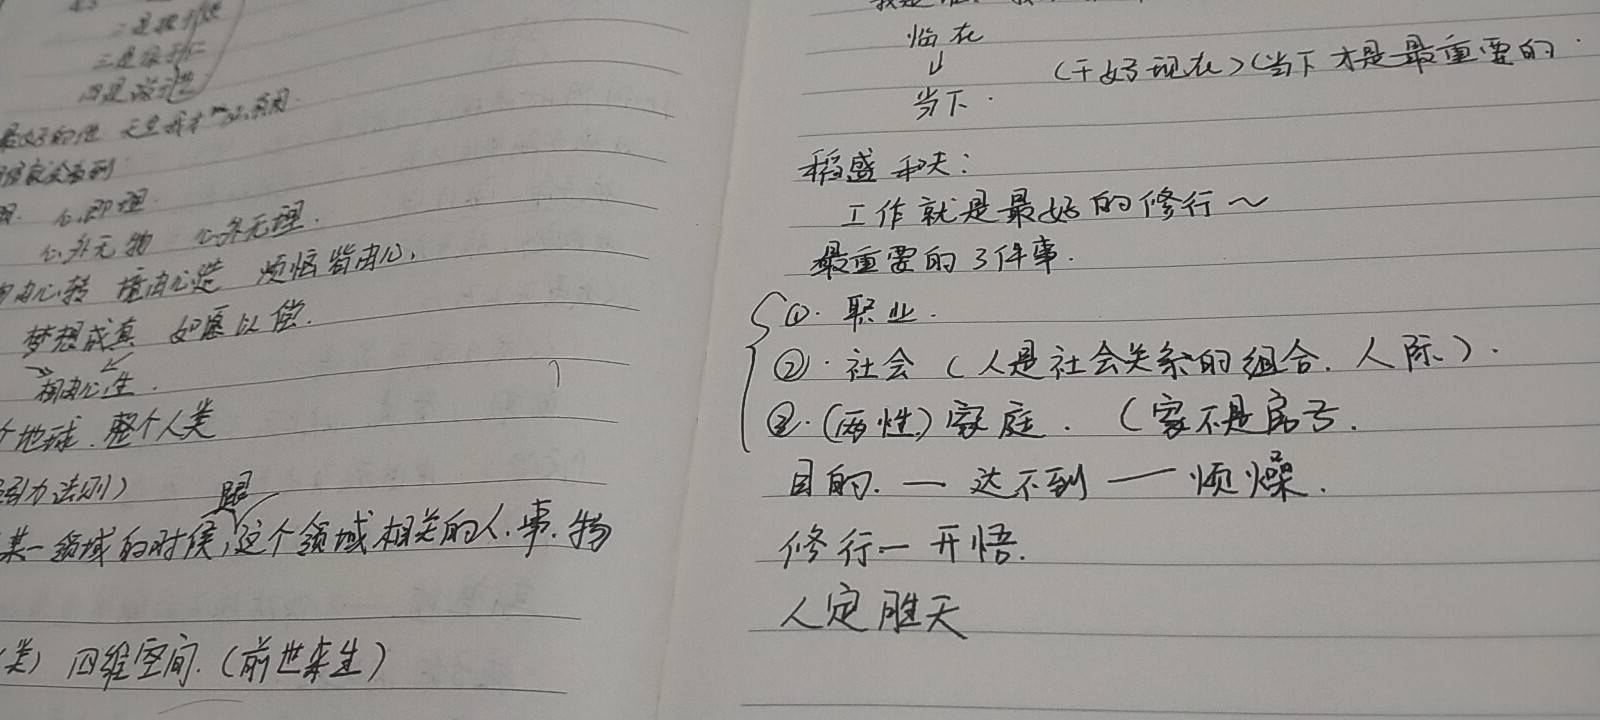 最好的
心即理
心外无物 心外无理.
由心转 境由心造 烦恼皆由心,
梦想成真 如愿以偿.
相由心生.
个地球. 整个人类
引力法则)
跟
某一领域的时候,这个领域相关的人.事.物
类) 四维空间.(前世来生)
临在
↓
当下.
(干好现在)(当下才是最重要的.
稻盛和夫:
工作就是最好的修行～
最重要的3件事.
①. 职业.
②. 社会 (人是社会关系的组合. 人际).
③. (两性) 家庭. (家不是房子.
目的. 一 达不到 一 烦燥.
修行一开悟.
人定胜天